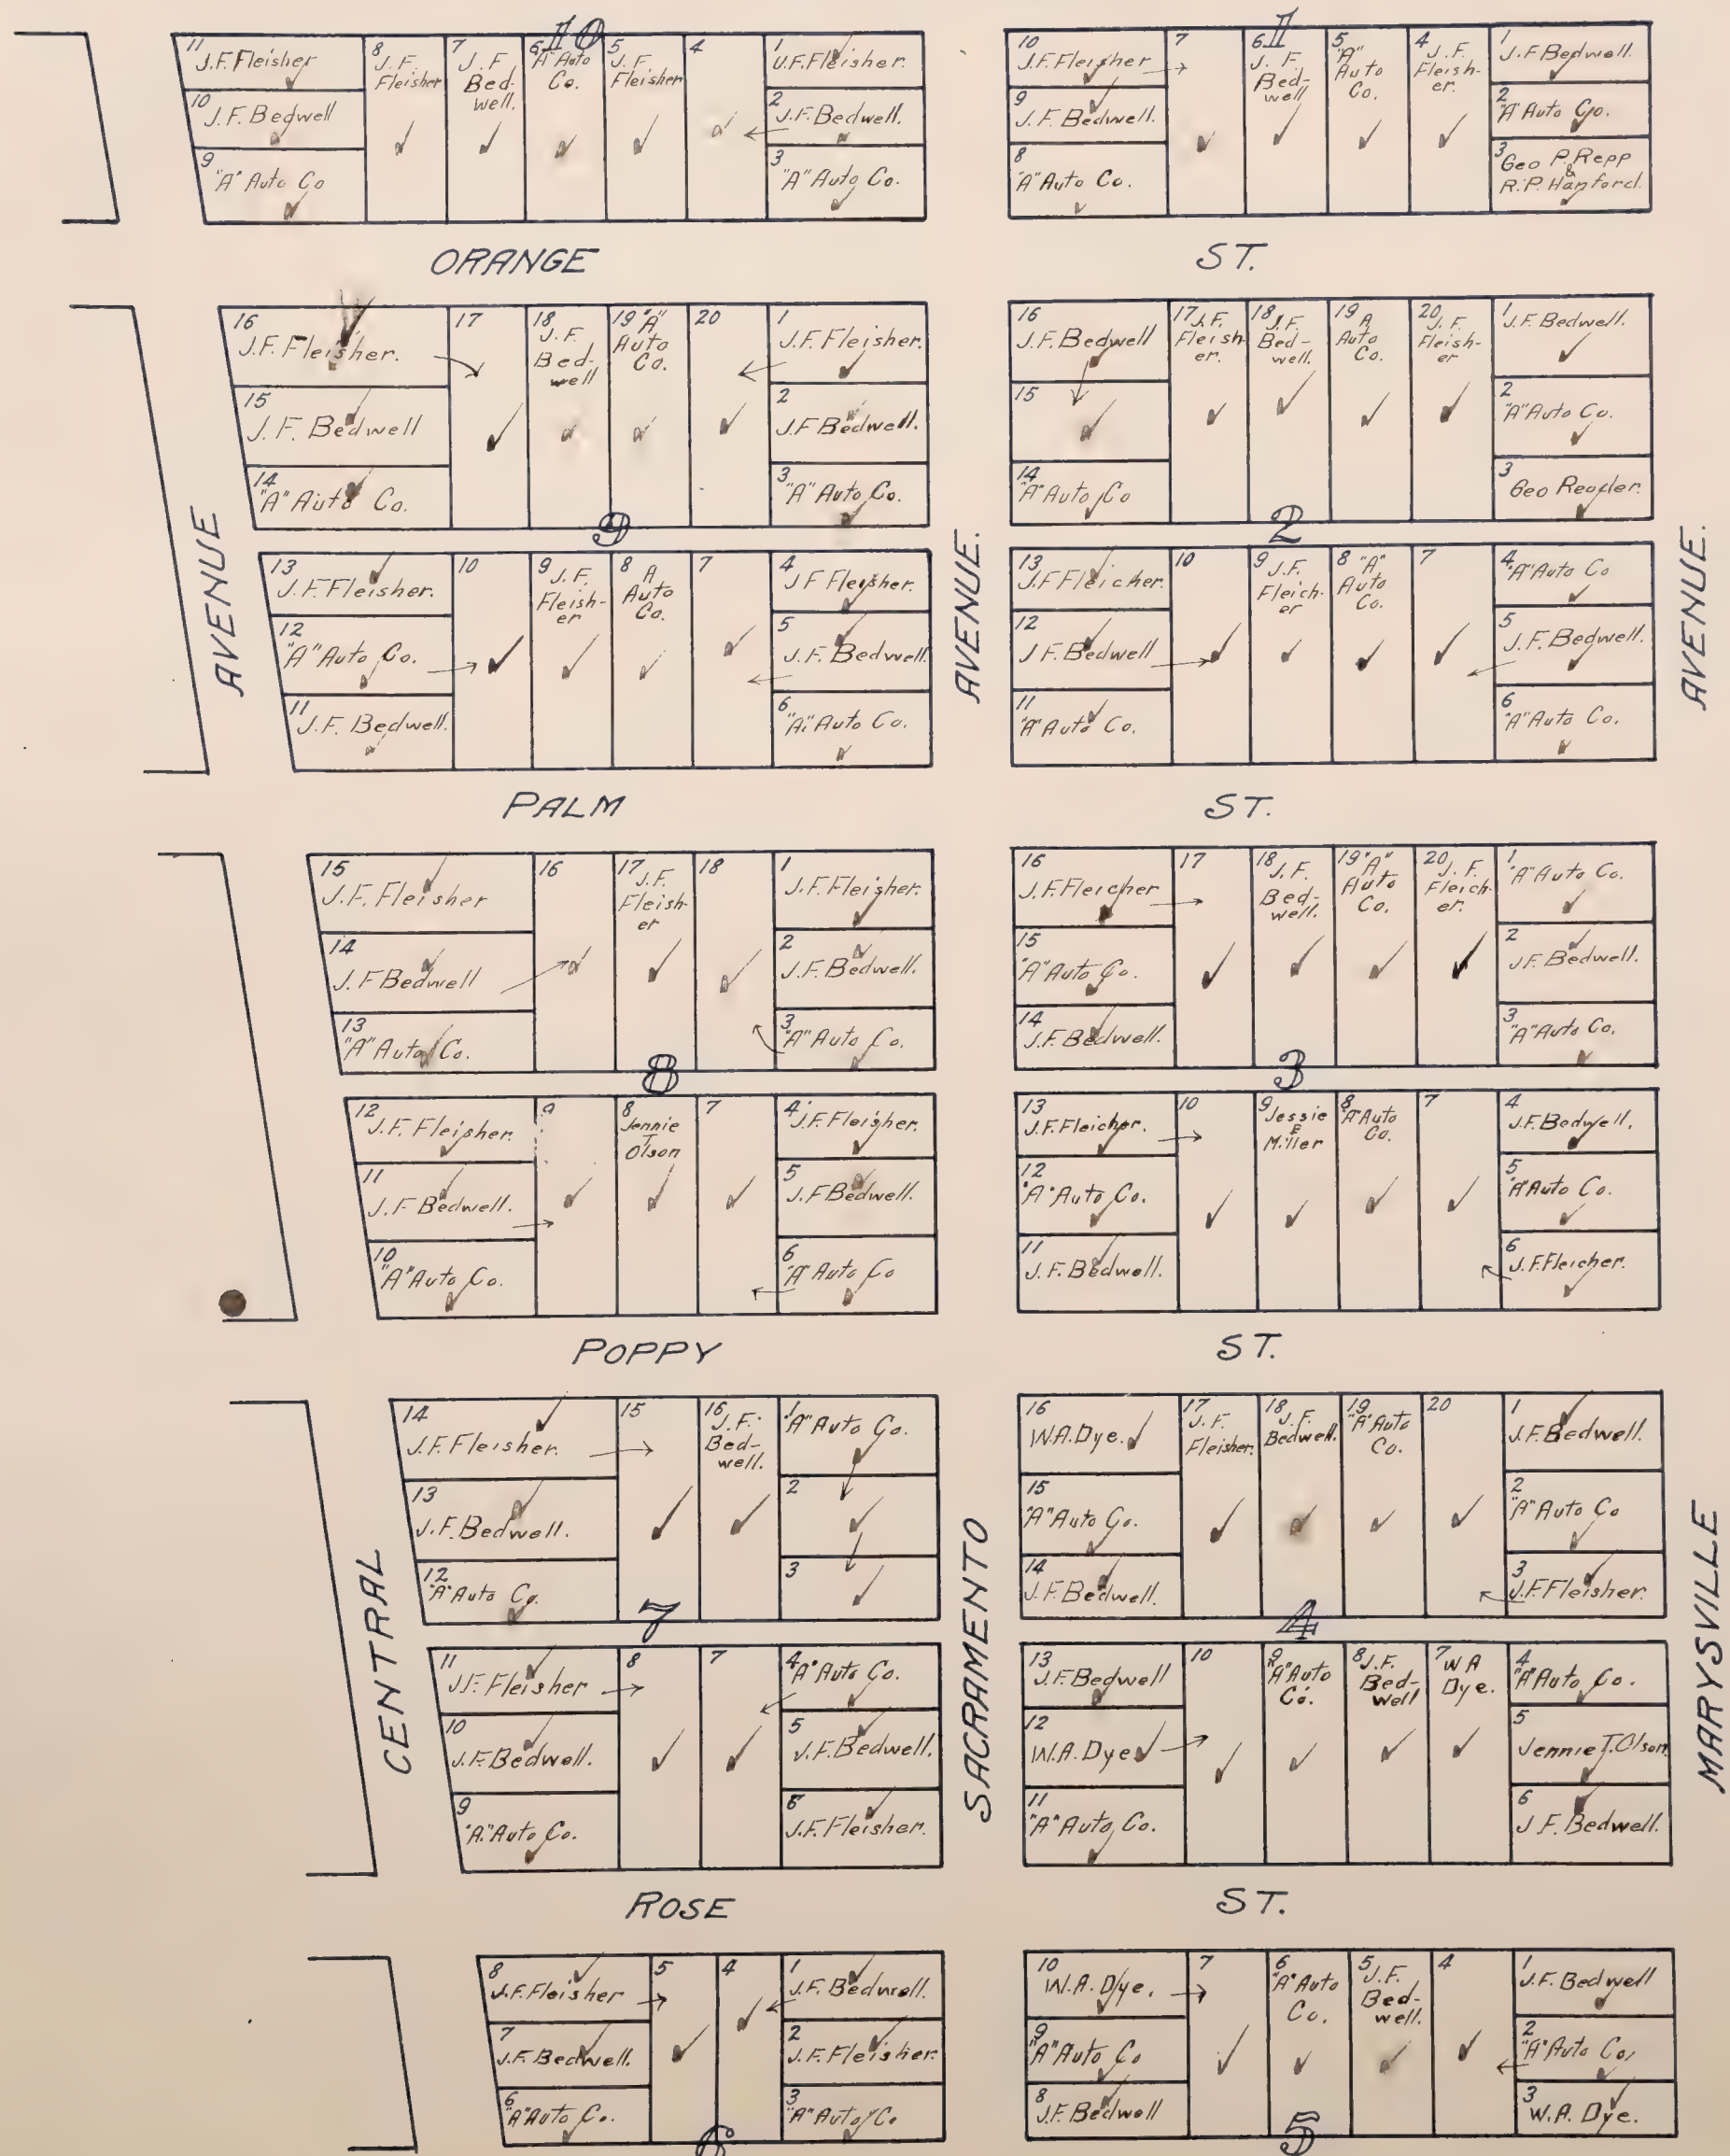 10
11
J.F. Fleisher
10
J.F. Bedwell
9
"A" Auto Co
8
J.F.
Fleisher
7
J.F
Bed-
well.
6
"A" Auto
Co.
5
J.F.
Fleisher
4
1
J.F. Fleisher.
2
J.F. Bedwell.
3
"A" Auto Co.
1
10
J.F. Fleisher
9
J.F. Bedwell.
8
"A" Auto Co.
7
6
J.F.
Bed-
well
5
"A"
Auto
Co.
4
J.F.
Fleish-
er.
1
J.F. Bedwell.
2
"A" Auto Co.
3
Geo P. Repp
&
R.P. Hanford.
ORANGE ST.
16
J.F. Fleisher.
15
J.F. Bedwell
14
"A" Auto Co.
17
18
J.F.
Bed-
well
19
"A"
Auto
Co.
20
1
J.F. Fleisher.
2
J.F Bedwell.
3
"A" Auto Co.
16
J.F. Bedwell
15
14
"A" Auto Co
17
J.F.
Fleish-
er.
18
J.F.
Bed-
well.
19
A
Auto
Co.
20
J.F.
Fleish-
er
1
J.F. Bedwell.
2
"A" Auto Co.
3
Geo Reader.
9
2
13
J.F. Fleisher.
12
"A" Auto Co.
11
J.F. Bedwell.
10
9
J.F.
Fleish-
er
8
A
Auto
Co.
7
4
J F Fleisher.
5
J.F. Bedwell.
6
"A." Auto Co.
13
J.F Fleicher.
12
J F. Bedwell
11
"A" Auto Co.
10
9
J.F.
Fleich-
er
8
"A"
Auto
Co.
7
4
"A" Auto Co
5
J.F. Bedwell.
6
"A" Auto Co.
AVENUE
AVENUE.
AVENUE.
PALM ST.
15
J.F. Fleisher
14
J.F Bedwell
13
"A" Auto Co.
16
17
J.F.
Fleish-
er
18
1
J.F. Fleisher.
2
J.F. Bedwell.
3
"A" Auto Co.
16
J.F. Fleicher
15
"A" Auto Co.
14
J.F. Bedwell.
17
18
J.F.
Bed-
well.
19
"A"
Auto
Co.
20
J.F.
Fleich-
er.
1
"A" Auto Co.
2
J.F. Bedwell.
3
"A" Auto Co.
8
3
12
J.F. Fleisher.
11
J.F Bedwell.
10
"A" Auto Co.
9
8
Jennie
T
Olson
7
4
J.F. Fleisher.
5
J.F Bedwell.
6
"A" Auto Co
13
J.F. Fleicher.
12
"A" Auto Co.
11
J.F. Bedwell.
10
9
Jessie
E
Miller
8
"A" Auto
Co.
7
4
J.F. Bedwell.
5
"A" Auto Co.
6
J.F. Fleicher.
POPPY ST.
14
J.F. Fleisher.
13
J.F. Bedwell.
12
"A" Auto Co.
15
16
J.F.
Bed-
well.
1
"A" Auto Co.
2
3
16
W.A. Dye.
15
"A" Auto Co.
14
J.F. Bedwell.
17
J.F.
Fleisher.
18
J.F.
Bedwell.
19
"A" Auto
Co.
20
1
J.F. Bedwell.
2
"A" Auto Co
3
J.F. Fleisher.
7
4
11
J.F. Fleisher
10
J.F. Bedwell.
9
"A." Auto Co.
8
7
4
"A" Auto Co.
5
J.F. Bedwell.
6
J.F. Fleisher.
13
J.F. Bedwell
12
W.A. Dye
11
"A" Auto Co.
10
9
"A" Auto
Co.
8
J.F.
Bed-
well
7
W A
Dye.
4
"A" Auto Co.
5
Jennie T. Olson
6
J.F. Bedwell.
CENTRAL
SACRAMENTO
MARYSVILLE
ROSE ST.
8
J.F. Fleisher
7
J.F. Bedwell.
6
"A" Auto Co.
5
4
1
J.F. Bedwell.
2
J.F. Fleisher.
3
"A" Auto Co
10
W.A. Dye.
9
"A" Auto Co
8
J.F. Bedwell
7
6
"A" Auto
Co.
5
J.F.
Bed-
well.
4
1
J.F. Bedwell
2
"A" Auto Co.
3
W.A. Dye.
6
5